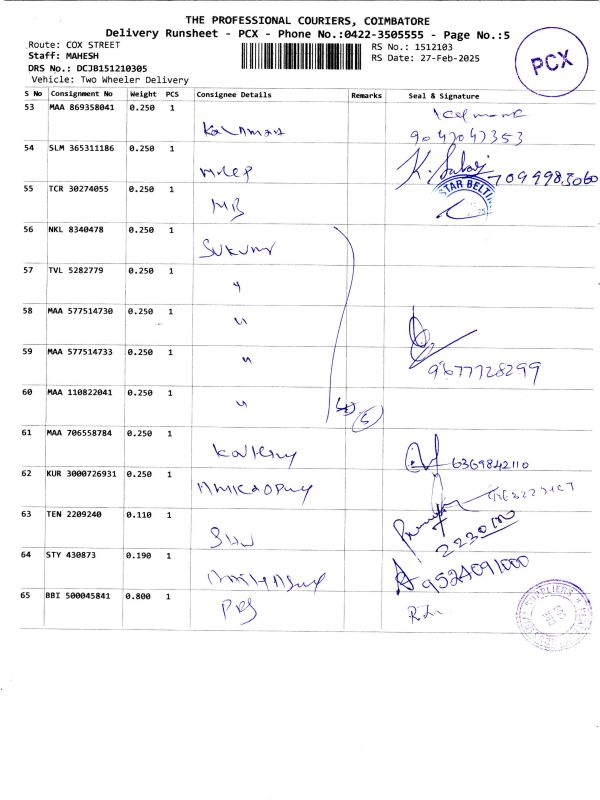 THE PROFESSIONAL COURIERS, COIMBATORE
Delivery Runsheet - PCX - Phone No.:0422-3505555 - Page No.:5
Route: COX STREET
RS No.: 1512103
Staff: MAHESH
RS Date: 27-Feb-2025
DRS No.: DCJB151210305
Vehicle: Two Wheeler Delivery
PCX
S No Consignment No Weight PCS Consignee Details Remarks Seal & Signature
53 MAA 869358041 0.250 1
9047047353
54 SLM 365311186 0.250 1
7094983060
55 TCR 30274055 0.250 1
MB
STAR BELTING
56 NKL 8340478 0.250 1
Sukumar
57 TVL 5282779 0.250 1
"
58 MAA 577514730 0.250 1
"
59 MAA 577514733 0.250 1
"
9677728299
60 MAA 110822041 0.250 1
"
5
61 MAA 706558784 0.250 1
6369842110
62 KUR 3000726931 0.250 1
63 TEN 2209240 0.110 1
2230100
64 STY 430873 0.190 1
9524091000
65 BBI 500045841 0.800 1
PRS